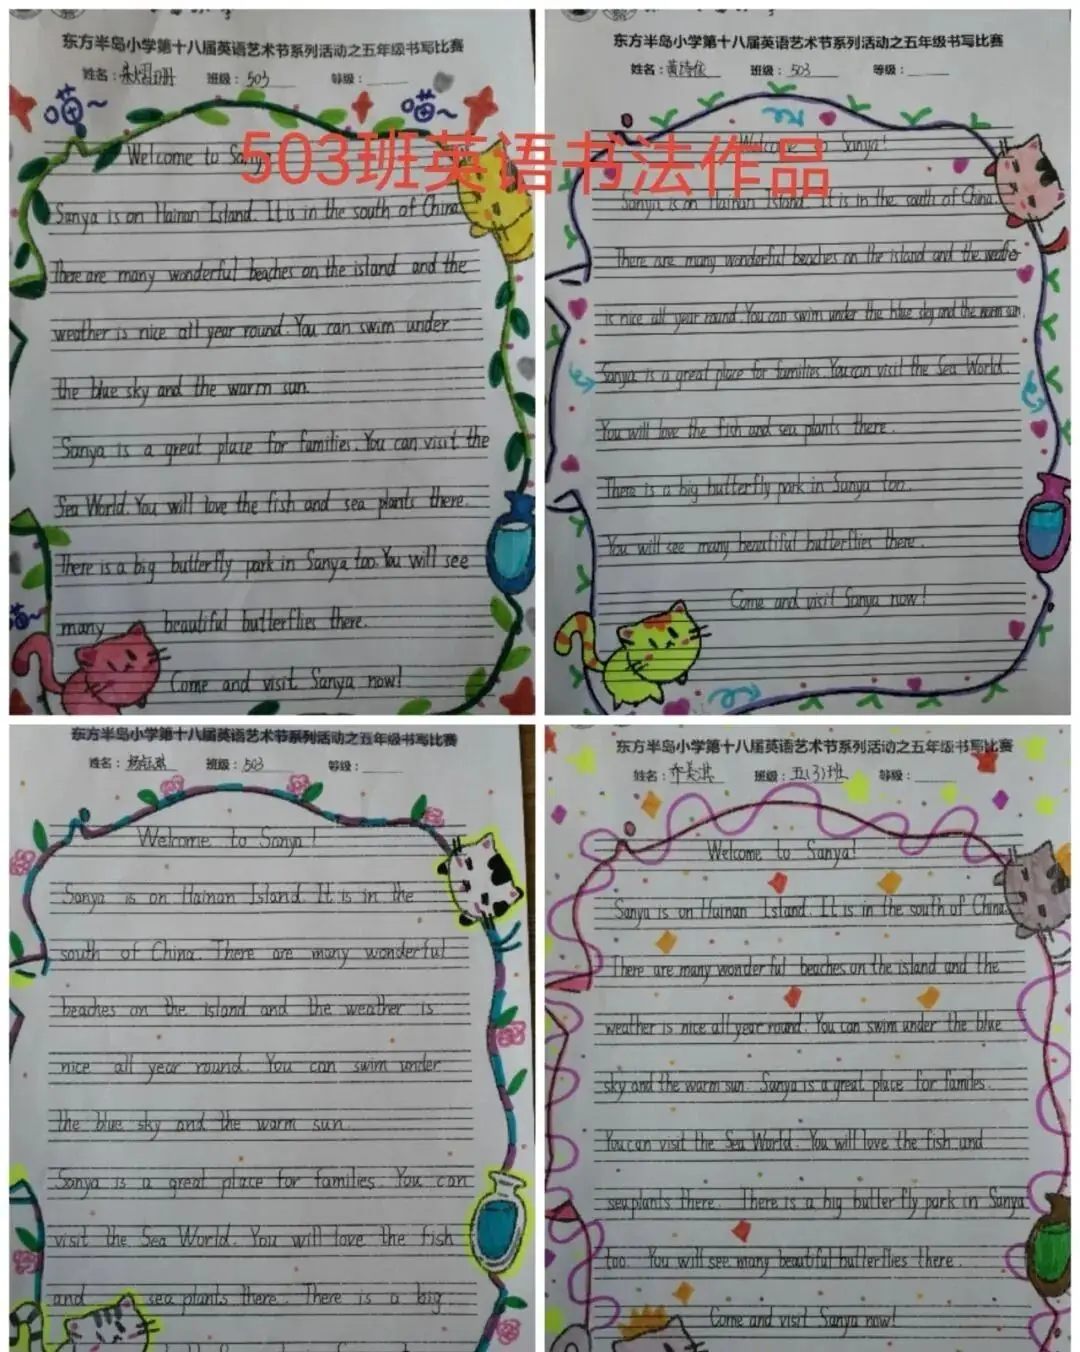 东方半岛小学第十八届英语艺术节系列活动之五年级书写比赛
姓名： 班级：503 等级：
喵~ 喵~
503班英语书法作品
Welcome to Sanya
Sanya is on Hainan Island. It is in the south of China.
There are many wonderful beaches on the island and the
weather is nice all year round. You can swim under
the blue sky and the warm sun.
Sanya is a great place for families. You can visit the
Sea World. You will love the fish and sea plants there.
There is a big butterfly park in Sanya too. You will see
喵~
many beautiful butterflies there.
Come and visit Sanya now!
东方半岛小学第十八届英语艺术节系列活动之五年级书写比赛
姓名：黄绮俊 班级：503 等级：
Welcome to Sanya!
Sanya is on Hainan Island. It is in the south of China
There are many wonderful beaches on the island and the weather
is nice all year round. You can swim under the blue sky and the warm sun.
Sanya is a great place for families. You can visit the Sea World.
You will love the fish and sea plants there.
There is a big butterfly park in Sanya too.
You will see many beautiful butterflies there.
Come and visit Sanya now!
东方半岛小学第十八届英语艺术节系列活动之五年级书写比赛
姓名：杨 班级：503 等级：
Welcome to Sanya!
Sanya is on Hainan Island. It is in the
south of China. There are many wonderful
beaches on the island and the weather is
nice all year round. You can swim under
the blue sky and the warm sun.
Sanya is a great place for families. You can
visit the Sea World. You will love the fish
and sea plants there. There is a big
东方半岛小学第十八届英语艺术节系列活动之五年级书写比赛
姓名：乔美淇 班级：五(3)班 等级：
Welcome to Sanya!
Sanya is on Hainan Island. It is in the south of China.
There are many wonderful beaches on the island and the
weather is nice all year round. You can swim under the blue
sky and the warm sun. Sanya is a great place for familes.
You can visit the Sea World. You will love the fish and
sea plants there. There is a big butterfly park in Sanya
too. You will see many beautiful butterflies there.
Come and visit Sanya now!